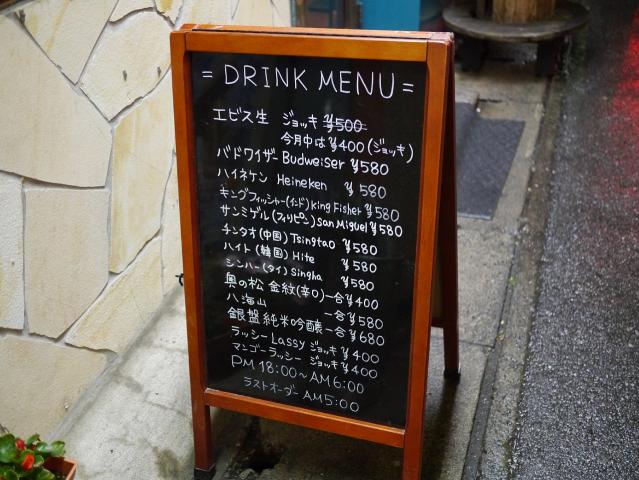 = DRINK MENU =
エビス生 ジョッキ ¥500
今月中は¥400(ジョッキ)
バドワイザー Budweiser ¥580
ハイネケン Heineken ¥580
キングフィッシャー(インド) King Fisher ¥580
サンミゲル(フィリピン) San Miguel ¥580
チンタオ(中国) Tsingtao ¥580
ハイト(韓国) Hite ¥580
シンハー(タイ) Singha ¥580
奥の松 金紋(辛口)一合¥400
八海山 一合¥580
銀盤 純米吟醸一合¥680
ラッシー Lassy ジョッキ¥400
マンゴーラッシー ジョッキ¥400
PM 18:00~AM 6:00
ラストオーダー AM5:00